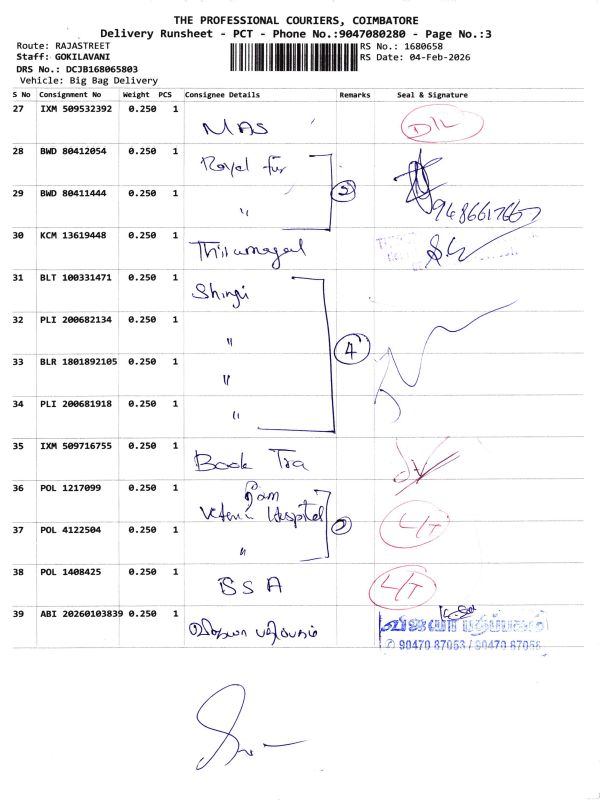 THE PROFESSIONAL COURIERS, COIMBATORE
Delivery Runsheet - PCT - Phone No.:9047080280 - Page No.:3
Route: RAJASTREET
Staff: GOKILAVANI
DRS No.: DCJB168065803
Vehicle: Big Bag Delivery
RS No.: 1680658
RS Date: 04-Feb-2026
S No Consignment No Weight PCS Consignee Details Remarks Seal & Signature
27 IXM 509532392 0.250 1 MAS D/L
28 BWD 80412054 0.250 1 Royal fur
29 BWD 80411444 0.250 1 " 2 9486617667
30 KCM 13619448 0.250 1 Thirumagal
31 BLT 100331471 0.250 1 Shingi
32 PLI 200682134 0.250 1 "
33 BLR 1801892105 0.250 1 " 4
34 PLI 200681918 0.250 1 "
35 IXM 509716755 0.250 1 Book Tra
36 POL 1217099 0.250 1 Hospital
37 POL 4122504 0.250 1 " 2 L/T
38 POL 1408425 0.250 1 BSA L/T
39 ABI 20260103839 0.250 1 விஜயா பதிப்பகம்
விஜயா பதிப்பகம்
✆ 90470 87053 / 90470 87058